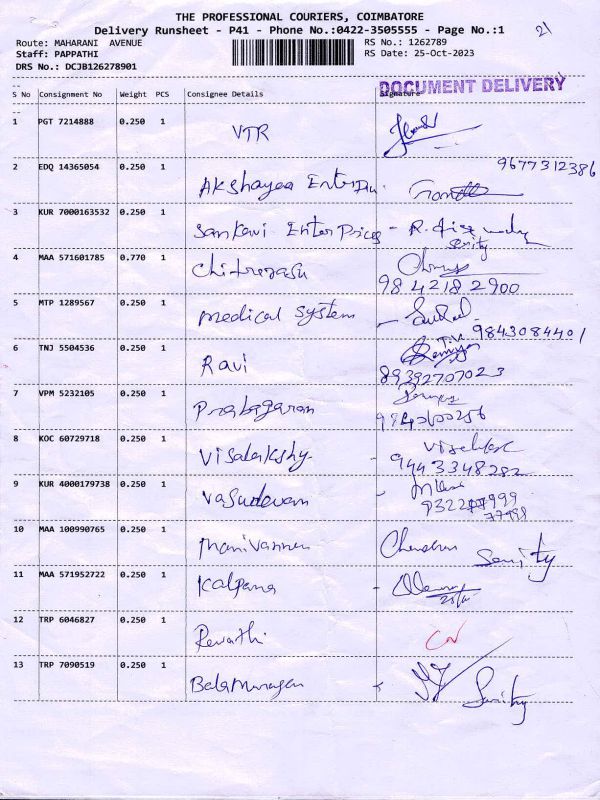 THE PROFESSIONAL COURIERS, COIMBATORE
Delivery Runsheet - P41 - Phone No.:0422-3505555 - Page No.:1
21
Route: MAHARANI AVENUE
RS No.: 1262789
Staff: PAPPATHI
RS Date: 25-Oct-2023
DRS No.: DCJB126278901
DOCUMENT DELIVERY
S No Consignment No Weight PCS Consignee Details Signature
1 PGT 7214888 0.250 1 VTR
2 EDQ 14365054 0.250 1 Akshayaa 9677312386
3 KUR 7000163532 0.250 1 Sankavi Enter Prices - R.
Senity
4 MAA 571601785 0.770 1 Chitrarasu
9842182900
5 MTP 1289567 0.250 1 medical system -
9843084401
6 TNJ 5504536 0.250 1 Ravi
89392707023
7 VPM 5232105 0.250 1 Prabagaran
8 KOC 60729718 0.250 1 Visalakshy -
9443348282
9 KUR 4000179738 0.250 1 Vasudevan -
77999
10 MAA 100990765 0.250 1 Manivannan Chandran Senity
11 MAA 571952722 0.250 1 Kalpana -
12 TRP 6046827 0.250 1 Revathi
13 TRP 7090519 0.250 1 Balamurugan Senity